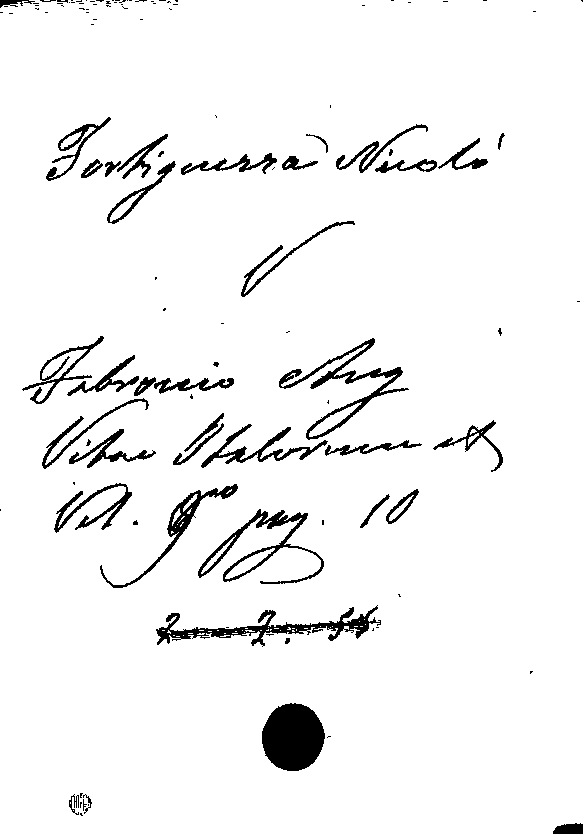 Fortiguerra Nicolò
V
Fabronio Ang
Vitae Italorum etc
Vol. 9no pag. 10
2 7. 54